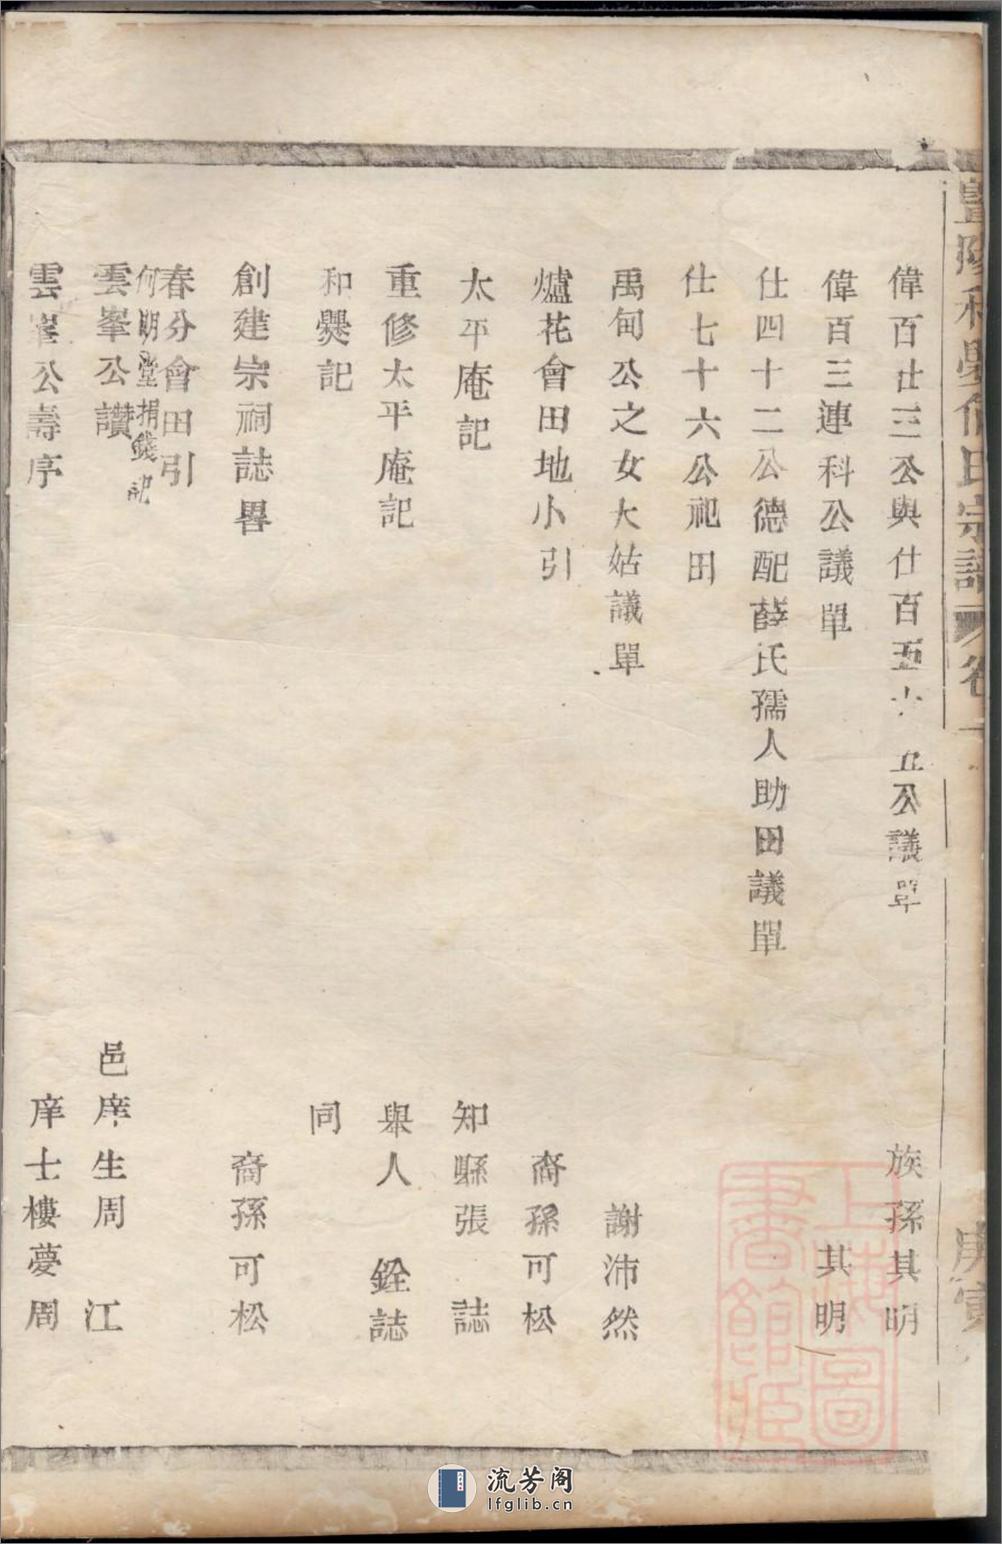 偉百廿三公與仕百五十五公議單 族孫其明
偉百三連科公議單 其明
仕四十二公德配薛氏孺人助田議單
仕七十六公祀田
禹甸公之女大姑議單 謝沛然
爐花會田地小引 裔孫可松
太平庵記 知縣張 誌
重修太平庵記 舉人 銓誌
和爨記 同
創建宗祠誌畧 裔孫可松
春分會田引
何明堂捐錢記
雲峯公讚 邑庠生周 江
雲峯公壽序 庠士樓夢周
氏宗譜 卷
庚寅
上海圖書館藏
流芳阁
lfglib.cn